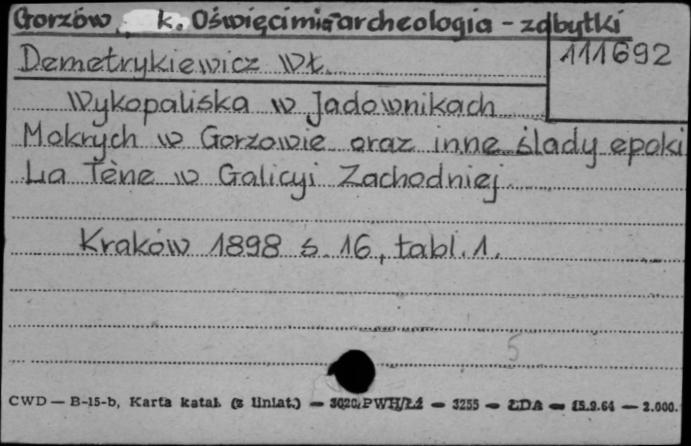 Gorzów, k. Oświęcimia-archeologia - zabytki
111692
Demetrykiewicz Wł.
Wykopaliska w Jadownikach
Mokrych w Gorzowie oraz inne ślady epoki
La Tène w Galicyi Zachodniej.
Kraków 1898 s. 16, tabl. 1.
5
CWD — B-15-b, Karta katal. (z liniat.) — 3020 PWH/Łź — 3255 — ŁDA — 15.9.64 — 2.000.